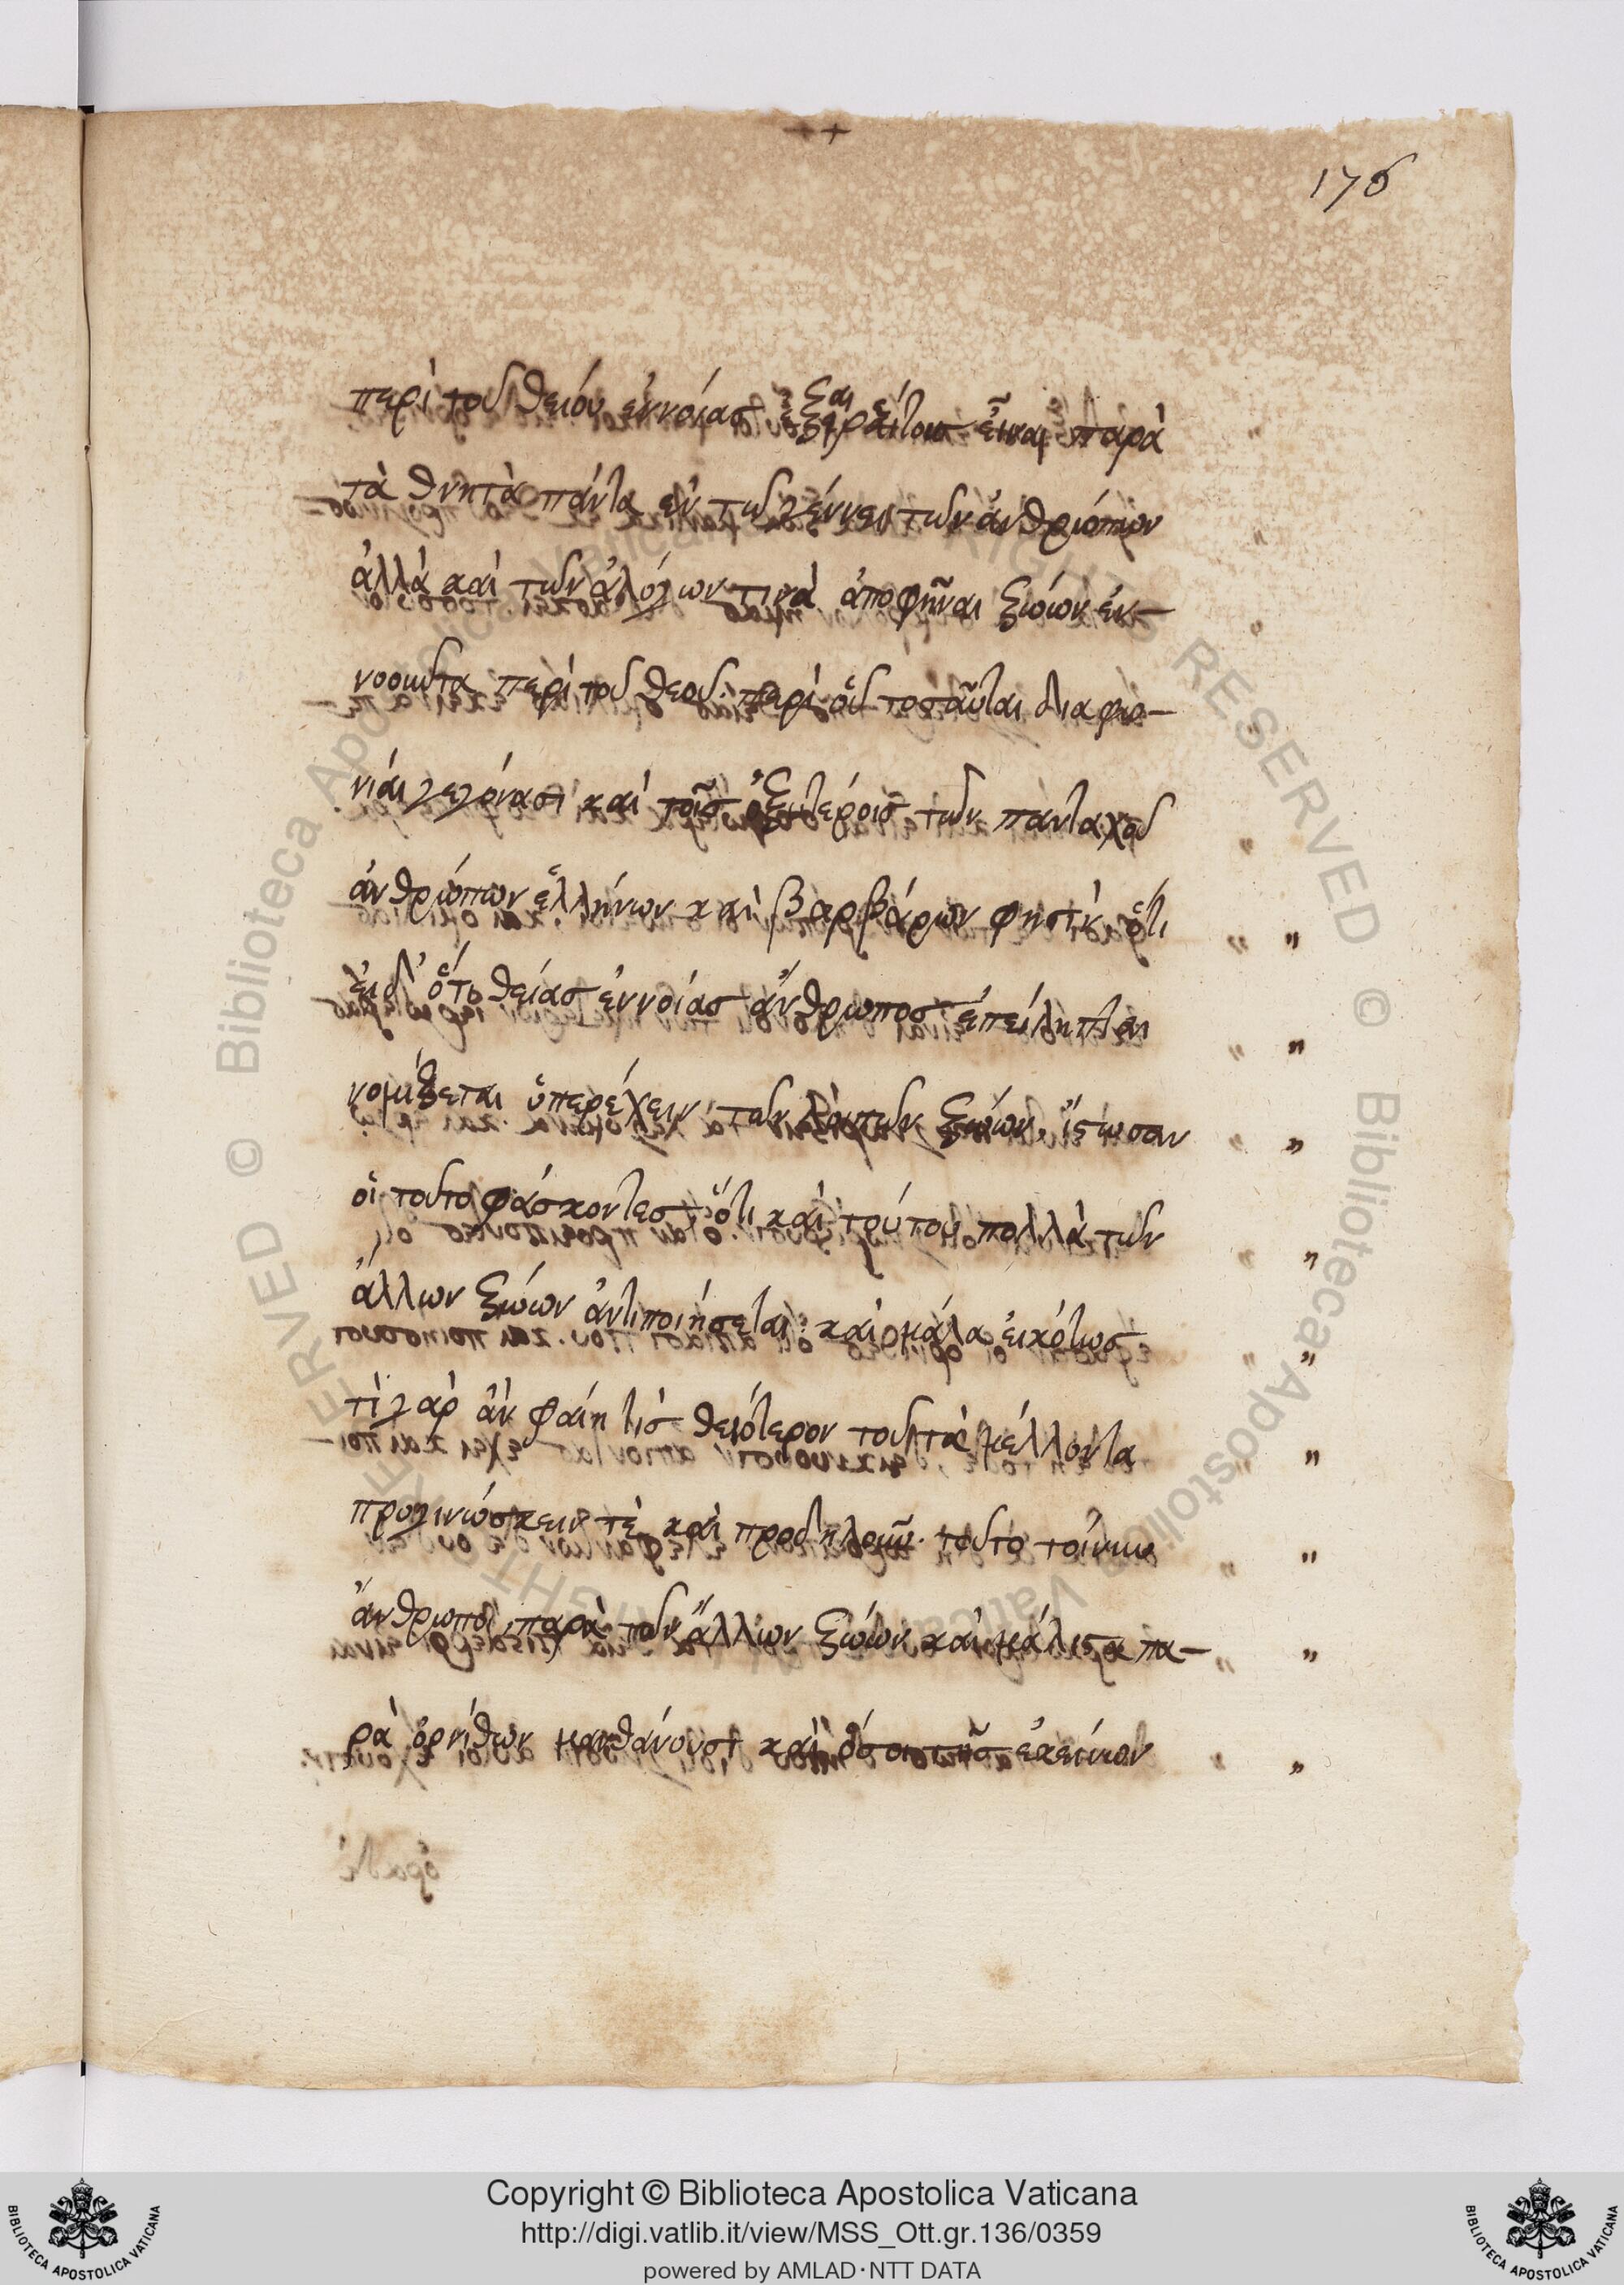 ++
176
περὶ τοῦ θείου ἐννοίας ἐξαιραίτους εἶναι παρὰ
τὰ θνητὰ πάντα ἐν τῶ γέννει τῶν ἀνθρώπων
ἀλλὰ καὶ τῶν ἀλόγων τινὰ ἀποφῆναι ζώων ἐν-
νοοῦντα περὶ τοῦ θεοῦ· περὶ οὗ τοσαῦται διαφω-
νίαι γεγόνασι καὶ τοῖς ὀξυτέροις τῶν πανταχοῦ
ἀνθρώπων ἑλλήνων καὶ βαρβάρων φησὶν, ὅτι
εἰ δ' ὅτι θείας ἐννοίας ἄνθρωπος ἐπείληπται
νομίζεται ὑπερέχειν τῶν λοιπῶν ζώων, ἴστωσαν
οἱ τοῦτο φάσκοντες, ὅτι καὶ τούτου πολλὰ τῶν
ἄλλων ζώων ἀντιποιήσεται· καὶ μάλα εἰκότως
τί γὰρ ἂν φαίη τὶς θειότερον τοῦ τὰ μέλλοντα
προγινώσκειν τὲ καὶ προδηλοῦν· τοῦτο τοίνυν
ἄνθρωποι παρὰ τῶν ἄλλων ζώων καὶ μάλιστα πα-
ρὰ ὀρνίθων μανθάνουσι καὶ ὅσοι τῆς ἐκείνων
Copyright © Biblioteca Apostolica Vaticana
http://digi.vatlib.it/view/MSS_Ott.gr.136/0359
powered by AMLAD·NTT DATA
BIBLIOTECA APOSTOLICA VATICANA
BIBLIOTECA APOSTOLICA VATICANA